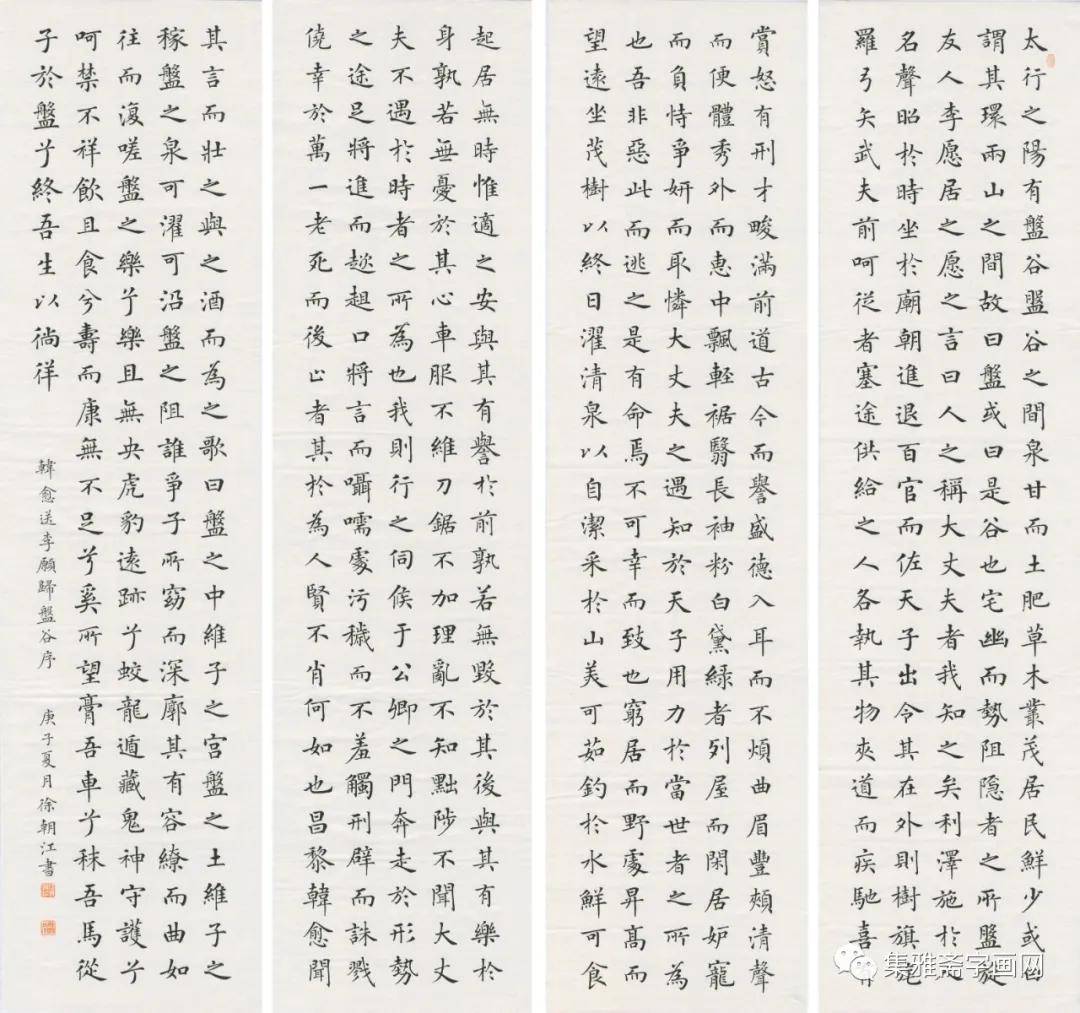 太行之陽有盤谷盤谷之間泉甘而土肥草木叢茂居民鮮少或曰
謂其環兩山之間故曰盤或曰是谷也宅幽而勢阻隐者之所盤旋
友人李愿居之愿之言曰人之稱大丈夫者我知之矣利澤施於
名聲昭於時坐於廟朝進退百官而佐天子出令其在外則樹旗旄
羅弓矢武夫前呵從者塞途供給之人各執其物夾道而疾馳喜有
賞怒有刑才畯滿前道古今而譽盛德入耳而不煩曲眉豐頰清聲
而便體秀外而惠中飄輕裾翳長袖粉白黛綠者列屋而閑居妒寵
而負恃爭妍而取憐大丈夫之遇知於天子用力於當世者之所為
也吾非惡此而逃之是有命焉不可幸而致也窮居而野處昇高而
望遠坐茂樹以終日濯清泉以自潔采於山美可茹釣於水鮮可食
起居無時惟適之安與其有譽於前孰若無毀於其後與其有樂於
身孰若無憂於其心車服不維刀鋸不加理亂不知黜陟不聞大丈
夫不遇於時者之所為也我則行之伺候于公卿之門奔走於形勢
之途足將進而趑趄口將言而囁嚅處污穢而不羞觸刑辟而誅戮
僥幸於萬一老死而後止者其於為人賢不肖何如也昌黎韓愈聞
其言而壯之與之酒而為之歌曰盤之中維子之宮盤之土維子之
稼盤之泉可濯可沿盤之阻誰爭子所窈而深廓其有容繚而曲如
往而復嗟盤之樂兮樂且無央虎豹遠跡兮蛟龍遁藏鬼神守護兮
呵禁不祥飲且食兮壽而康無不足兮奚所望膏吾車兮秣吾馬從
子於盤兮終吾生以徜徉
韓愈送李願歸盤谷序 庚子夏月徐朝江書
集雅斋字画网